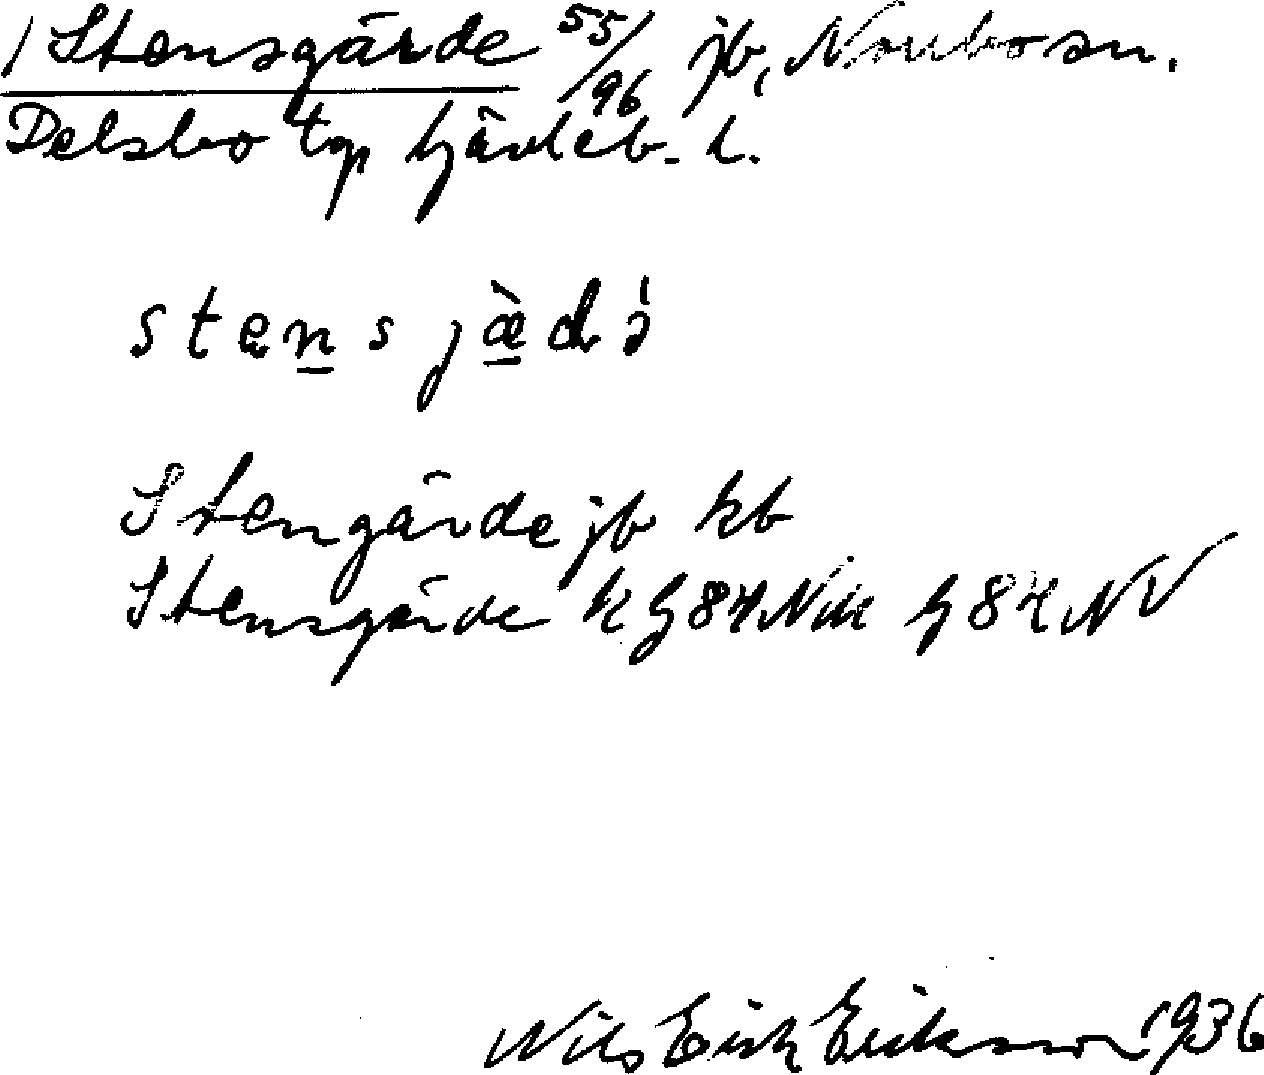 / Stensgärde 55/96 jb, Norrbo sn.
Delsbo tg Gävleb. l.
stensjæ̀də́
Stengärde jb kb
Stensgärde k G84 G84NV
Nils Erik Eriksson 1936